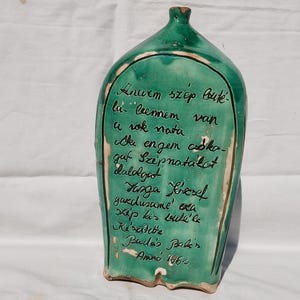 Nevem szép buté-
la- bennem van
a sok nóta
Aki engem csóko-
gat Szép nótákat
dalolgat
Varga József
gazduramé eza
szép kis butéla
Készítette
Anno 196